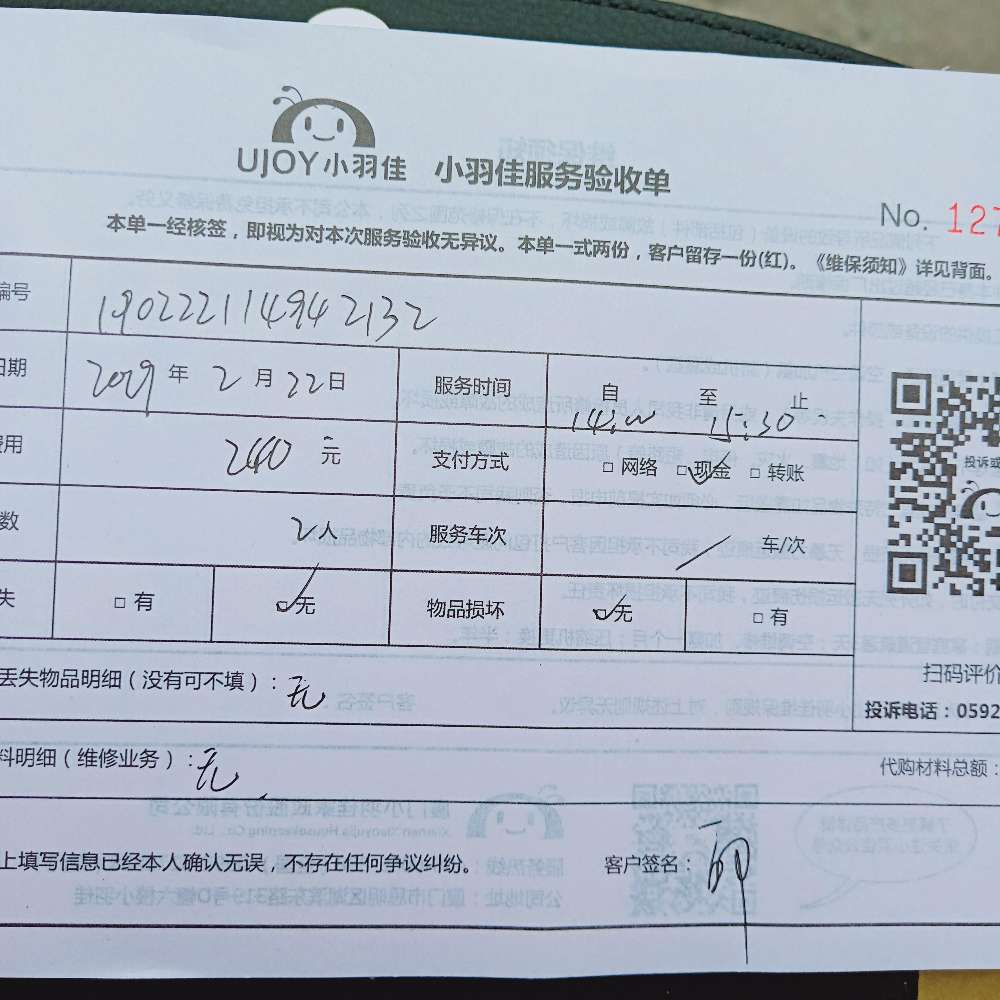 UJOY小羽佳 小羽佳服务验收单
No. 127
本单一经核签，即视为对本次服务验收无异议。本单一式两份，客户留存一份(红)。《维保须知》详见背面。
编号 190222114942132
日期 2019年2月22日 服务时间 自14:00至15:30止
费用 240元 支付方式 □网络 ☑现金 □转账
数 2人 服务车次 / 车/次
失 □有 ☑无 物品损坏 ☑无 □有
投诉或
扫码评价
投诉电话：0592
丢失物品明细（没有可不填）：无
料明细（维修业务）：无 代购材料总额：
上填写信息已经本人确认无误，不存在任何争议纠纷。 客户签名：